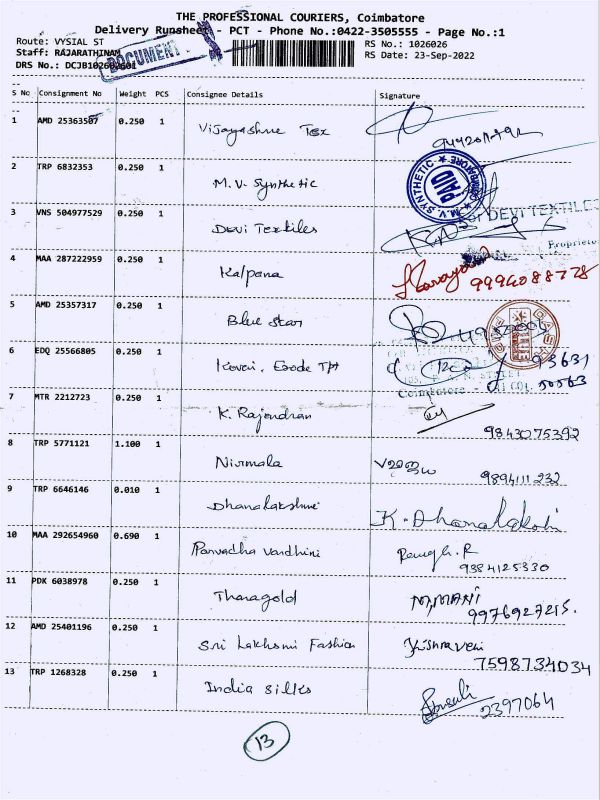 THE PROFESSIONAL COURIERS, Coimbatore
Delivery Runsheet - PCT - Phone No.:0422-3505555 - Page No.:1
Route: VYSIAL ST RS No.: 1026026
Staff: RAJARATHINAM RS Date: 23-Sep-2022
DRS No.: DCJB102602601
DOCUMENT
S No Consignment No Weight PCS Consignee Details Signature
1 AMD 25363507 0.250 1 Vijayashree Tex
2 TRP 6832353 0.250 1 M.V. Synthetic
M.V. SYNTHETIC COIMBATORE PAID
3 VNS 504977529 0.250 1 Devi Textiles
For DEVI TEXTILES
Proprietor
4 MAA 287222959 0.250 1 Kalpana 9994088778
5 AMD 25357317 0.250 1 Blue star
6 EDQ 25566805 0.250 1 Kovai. Erode TPT 93631
Coimbatore - 641 001. 50563
7 MTR 2212723 0.250 1 K. Rajendran 9843075392
8 TRP 5771121 1.100 1 Nirmala 9894111232
9 TRP 6646146 0.010 1 Dhanalakshmi K. Dhanalakshmi
10 MAA 292654960 0.690 1 Parvadha Vardhini 9384125330
11 PDK 6038978 0.250 1 Tharagold M. MANI 9976927215.
12 AMD 25401196 0.250 1 Sri Lakshmi Fashion 7598734034
13 TRP 1268328 0.250 1 India silks 2397064
13